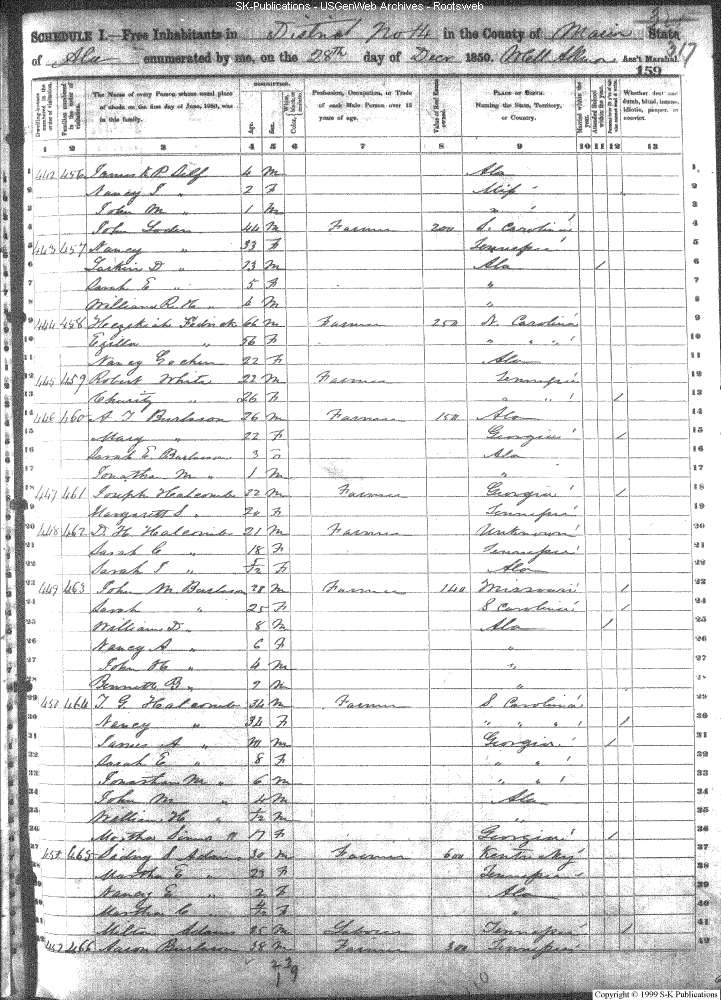 SK-Publications - USGenWeb Archives - Rootsweb
SCHEDULE I.—Free Inhabitants in District No 4 in the County of State
of Ala enumerated by me, on the 28th day of Decr 1850. Ass't Marshal.
317
159
Dwelling-houses numbered in the order of visitation.
Families numbered in the order of visitation.
The Name of every Person whose usual place of abode on the first day of June, 1850, was in this family.
DESCRIPTION.
Age.
Sex.
Profession, Occupation, or Trade of each Male Person over 15 years of age.
Value of Real Estate owned.
PLACE OF BIRTH. Naming the State, Territory, or Country.
Married within the year.
Attended School within the year.
1 2 3 4 5 6 7 8 9 10 11 12 13
1 442 456 James K P Self 4 M Ala
2 Nancy J " 2 F Miss
3 John M " 1 M "
4 John Loden 44 M Farmer 200 S. Carolina
5 443 457 Nancy " 33 F Tennessee
6 Larkin D " 13 M Ala 1
7 Sarah E " 5 F "
8 William R. H " 4 M "
9 444 458 Hezekiah Fedrick 66 M Farmer 250 N. Carolina
10 " 56 F " "
11 Nancy 22 F Ala
12 445 459 Robert White 22 M Farmer Tennessee
13 Charity " 26 F " " 1
14 446 460 A. J Burleson 26 M Farmer 150 Ala
15 Mary " 22 F Georgia 1
16 Sarah E Burleson 3 F Ala
17 Jonathan M " 1 M "
18 447 461 Joseph Halcomb 22 M Farmer Georgia 1
19 Margarett S " 20 F Tennessee
20 448 462 D. H. Halcomb 21 M Farmer Unknown
21 Sarah C " 18 F Tennessee
22 Sarah J " F Ala
23 449 463 John M Burleson 28 M Farmer 140 Missouri 1
24 Sarah " 25 F S Carolina 1
25 William D. " 8 M Ala 1
26 Nancy A " 6 F "
27 John H " 4 M "
28 Bennett B " 2 M "
29 450 464 T. G. Halcomb 34 M Farmer S. Carolina
30 Nancy " 34 F " " 1
31 James A " 10 M Georgia 1
32 Sarah E " 8 F " "
33 Jonathan M " 6 M " "
34 John M " 4 M Ala
35 William H " M "
36 Martha Sims 17 F Georgia 1
37 451 465 Sidney S Adams 30 M Farmer 600 Kentucky
38 Martha E " 23 F Tennessee
39 Nancy E " 2 F Ala
40 Martha C " F "
41 Milton Adams 25 M Laborer Tennessee 1
42 452 466 Aaron Burleson 38 M Farmer 300 Tennessee
Copyright © 1999 S-K Publications